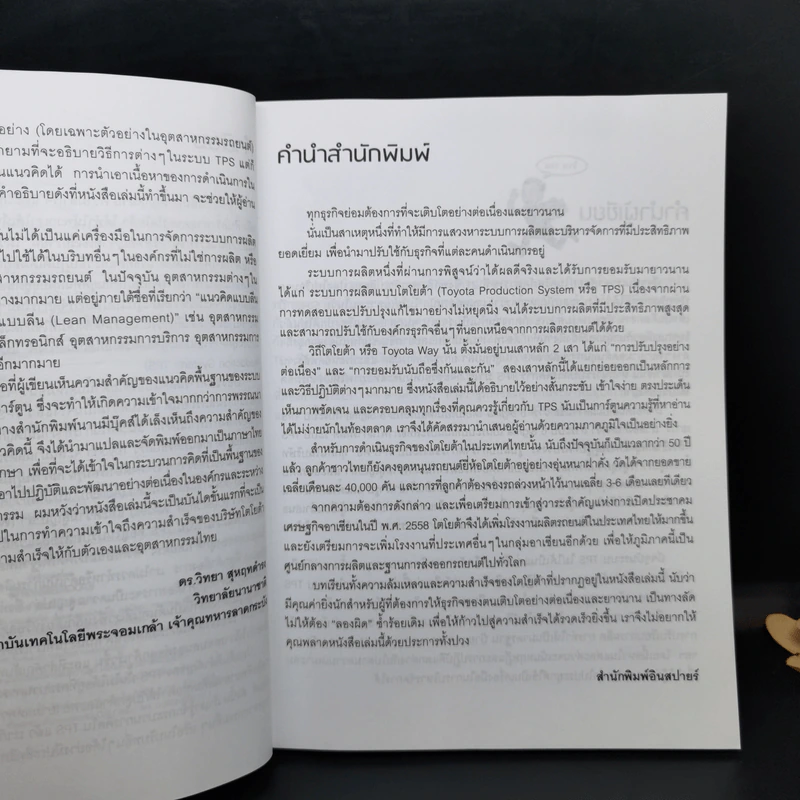 อย่าง (โดยเฉพาะตัวอย่างในอุตสาหกรรมรถยนต์)
ยามที่จะอธิบายวิธีการต่างๆ ในระบบ TPS แต่ก็
นแนวคิดได้ การนำเอาเนื้อหาของการดำเนินการใน
คำอธิบายดังที่หนังสือเล่มนี้ทำขึ้นมา จะช่วยให้ผู้อ่าน
นไม่ได้เป็นแค่เครื่องมือในการจัดการระบบการผลิต
ไปใช้ได้ในบริบทอื่นๆ ในองค์กรที่ไม่ใช่การผลิต หรือ
สาหกรรมรถยนต์ ในปัจจุบัน อุตสาหกรรมต่างๆ ใน
างมากมาย แต่อยู่ภายใต้ชื่อที่เรียกว่า "แนวคิดแบบลีน
แบบลีน (Lean Management)" เช่น อุตสาหกรรม
ล็กทรอนิกส์ อุตสาหกรรมการบริการ อุตสาหกรรมการ
อีกมากมาย
อที่ผู้เขียนเห็นความสำคัญของแนวคิดพื้นฐานของระบบ
าร์ตูน ซึ่งจะทำให้เกิดความเข้าใจมากกว่าการพรรณนา
างสำนักพิมพ์นานมีบุ๊คส์ได้เล็งเห็นถึงความสำคัญของ
วคิดนี้ จึงได้นำมาแปลและจัดพิมพ์ออกมาเป็นภาษาไทย
กษา เพื่อที่จะได้เข้าใจในกระบวนการคิดที่เป็นพื้นฐานของ
อาไปปฏิบัติและพัฒนาอย่างต่อเนื่องในองค์กรและระหว่าง
รรม ผมหวังว่าหนังสือเล่มนี้จะเป็นบันไดขั้นแรกที่จะเป็น
ปในการทำความเข้าใจถึงความสำเร็จของบริษัทโตโยต้า
วามสำเร็จให้กับตัวเองและอุตสาหกรรมไทย
ดร.วิทยา สุหฤทดำรง
วิทยาลัยนานาชาติ
าบันเทคโนโลยีพระจอมเกล้า เจ้าคุณทหารลาดกระบัง
คำนำสำนักพิมพ์
ทุกธุรกิจย่อมต้องการที่จะเติบโตอย่างต่อเนื่องและยาวนาน
นั่นเป็นสาเหตุหนึ่งที่ทำให้มีการแสวงหาระบบการผลิตและบริหารจัดการที่มีประสิทธิภาพ
ยอดเยี่ยม เพื่อนำมาปรับใช้กับธุรกิจที่แต่ละคนดำเนินการอยู่
ระบบการผลิตหนึ่งที่ผ่านการพิสูจน์ว่าได้ผลดีจริงและได้รับการยอมรับมายาวนาน
ได้แก่ ระบบการผลิตแบบโตโยต้า (Toyota Production System หรือ TPS) เนื่องจากผ่าน
การทดสอบและปรับปรุงแก้ไขมาอย่างไม่หยุดนิ่ง จนได้ระบบการผลิตที่มีประสิทธิภาพสูงสุด
และสามารถปรับใช้กับองค์กรธุรกิจอื่นๆ ที่นอกเหนือจากการผลิตรถยนต์ได้ด้วย
วิถีโตโยต้า หรือ Toyota Way นั้น ตั้งมั่นอยู่บนเสาหลัก 2 เสา ได้แก่ "การปรับปรุงอย่าง
ต่อเนื่อง" และ "การยอมรับนับถือซึ่งกันและกัน" สองเสาหลักนี้ได้แยกย่อยออกเป็นหลักการ
และวิธีปฏิบัติต่างๆ มากมาย ซึ่งหนังสือเล่มนี้ได้อธิบายไว้อย่างสั้นกระชับ เข้าใจง่าย ตรงประเด็น
เห็นภาพชัดเจน และครอบคลุมทุกเรื่องที่คุณควรรู้เกี่ยวกับ TPS นับเป็นการ์ตูนความรู้ที่หาอ่าน
ได้ไม่ง่ายนักในท้องตลาด เราจึงได้คัดสรรมานำเสนอผู้อ่านด้วยความภาคภูมิใจเป็นอย่างยิ่ง
สำหรับการดำเนินธุรกิจของโตโยต้าในประเทศไทยนั้น นับถึงปัจจุบันก็เป็นเวลากว่า 50 ปี
แล้ว ลูกค้าชาวไทยก็ยังคงอุดหนุนรถยนต์ยี่ห้อโตโยต้าอยู่อย่างอุ่นหนาฝาคั่ง วัดได้จากยอดขาย
เฉลี่ยเดือนละ 40,000 คัน และการที่ลูกค้าต้องจองรถล่วงหน้าไว้นานเฉลี่ย 3-6 เดือนเลยทีเดียว
จากความต้องการดังกล่าว และเพื่อเตรียมการเข้าสู่วาระสำคัญแห่งการเปิดประชาคม
เศรษฐกิจอาเซียนในปี พ.ศ. 2558 โตโยต้าจึงได้เพิ่มโรงงานผลิตรถยนต์ในประเทศไทยให้มากขึ้น
และยังเตรียมการจะเพิ่มโรงงานที่ประเทศอื่นๆ ในกลุ่มอาเซียนอีกด้วย เพื่อให้ภูมิภาคนี้เป็น
ศูนย์กลางการผลิตและฐานการส่งออกรถยนต์ไปทั่วโลก
บทเรียนทั้งความล้มเหลวและความสำเร็จของโตโยต้าที่ปรากฏอยู่ในหนังสือเล่มนี้ นับว่า
มีคุณค่ายิ่งนักสำหรับผู้ที่ต้องการให้ธุรกิจของตนเติบโตอย่างต่อเนื่องและยาวนาน เป็นทางลัด
ไม่ให้ต้อง "ลองผิด" ซ้ำรอยเดิม เพื่อให้ก้าวไปสู่ความสำเร็จได้รวดเร็วยิ่งขึ้น เราจึงไม่อยากให้
คุณพลาดหนังสือเล่มนี้ด้วยประการทั้งปวง
สำนักพิมพ์อินสปายร์